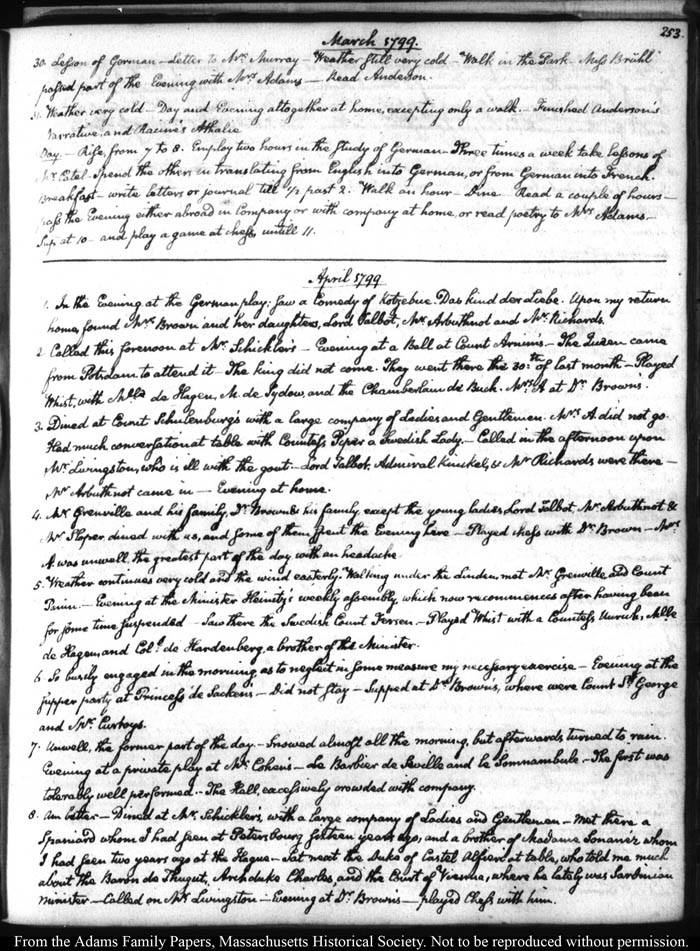 253.
March 1799.
30. Lesson of German – Letter to Mr. Murray – Weather still very cold – Walk in the Park. Miss Brühl
passed part of the Evening with Mrs Adams – Read Anderson.
31. Weather very cold – Day and Evening altogether at home, excepting only a walk. – Finished Anderson's
Narrative, and Racine's Athalie
Day. – Rise, from 7 to 8. Employ two hours in the study of German – Three times a week take lessons of
Mr. Catel – Spend the others in translating from English into German, or from German into French.
Breakfast – write letters or journal till ½ past 2. Walk an hour – Dine – Read a couple of hours –
pass the Evening either abroad in Company or with company at home, or read poetry to Mrs. Adams. –
Sup at 10 – and play a game at chess untill 11.
April 1799
1. In the Evening at the German play; saw a Comedy of Kotzebue. Das kind der Liebe. Upon my return
home, found Mrs. Brown and her daughters, Lord Talbot, Mr. Arbuthnot and Mr. Richards.
2. Called this forenoon at Mr. Schickler's – Evening at a Ball at Count Arnim's – The Queen came
from Potsdam to attend it – The king did not come. They went there the 30.th of last month – Played
Whist, with Mlle de Hagen, M. de Sydow, and the Chamberlain de Buch. Mrs. A at Dr. Browns.
3. Dined at Count Schulenburg's with a large company of Ladies and Gentlemen. Mrs. A did not go.
Had much conversation at table with Countess Piper a Swedish Lady. – Called in the afternoon upon
Mr. Livingston, who is ill with the gout – Lord Talbot, Admiral & Mr Richards were there –
Mr Arbuthnot came in – Evening at home.
4. Mr. Grenville and his family, Dr. Brown & his family, except the young ladies, Lord Talbot, Mr. Arbuthnot &
Mr. Sloper dined with us, and some of them spent the Evening here – Played chess with Dr. Brown – Mrs.
A. was unwell, the greatest part of the day with an headache
5. Weather continues very cold and the wind easterly. Walking under the Linden, met Mr. Grenville, and Count
Panin. – Evening at the Minister Heinitz's weekly assembly, which now recommences after having been
for some time suspended – Saw there the Swedish Count Fersen. – Played Whist with a Countess Unruh, Mlle
de Hagen, and Col.l de Hardenberg, a brother of the Minister.
6. So busily engaged in the morning as to neglect in some measure my necessary exercise – Evening at the
supper party at Princess de Sacken's – Did not stay – Supped at Dr. Brown's, where were Count St. George
and Mr.
7. Unwell, the former part of the day. – Snowed almost all the morning, but afterwards turned to rain.
Evening at a private play at Mr. Cohen's – Le Barbier de Seville and le Somnambule – The first was
tolerably well performed. – The Hall, excessively crowded with company.
8. Am better – Dined at Mr. Schickler's, with a large company of Ladies and Gentlemen – Met there a
Spaniard whom I had seen at Petersbourg sixteen years ago, and a brother of Madame whom
I had seen two years ago at the Hague – Sat next the Duke of Castel at table, who told me much
about the Baron de Thugut, Archduke Charles, and the Court of Vienna, where he lately was Sardinian
minister – Called on Mr. Livingston – Evening at Dr. Browns – played Chess with him.
From the Adams Family Papers, Massachusetts Historical Society. Not to be reproduced without permission.